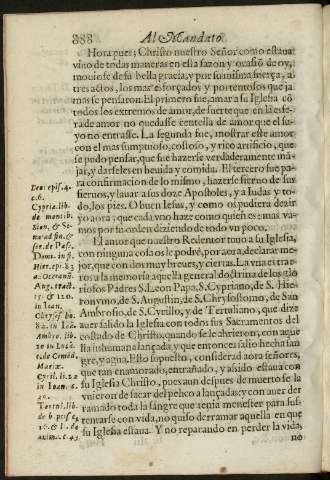 388
Al Mandato
Hora pues; Christo nuestro Señor como estaua
viuo de todas maneras en esta sazon y ocasiō de oy,
mouiose de su bella gracia, y por su misma fuerça, a
tres actos, los mas esforçados y portentosos que ja-
mas se pensaron. El primero fue, amar a su Iglesia cō
todos los extremos de amor, de suerte que en la esfe-
ra de amor no quedasse centella de amor que el su-
yo no entrasse. La segunda fue, mostrar este amor
con el mas sumptuoso, costoso, y rico artificio, que
se pudo pensar, que fue hazerse verdaderamente mā-
jar, y darseles en beuida y comida. El tercero fue pa-
ra confirmacion de lo mismo, hazerse sieruo de sus
sieruos, y lauar a sus doze Apostoles, y a Iudas y to-
do, los pies. O buen Iesus, y como os pudiera dezir
yo aora; que cada vno haze como quien es: mas va-
mos por su orden diziendo de todo vn poco.
El amor que nuestro Redentor tuuo a su Iglesia,
con ninguna cosa os le podrè, por aora, declarar me-
jor, que con dos muy breues, y ciertas. La vna es tra-
ros a la memoria aquella general doctrina de los glo
riosos Padres S. Leon Papa, S. Cypriano, de S. Hie-
ronymo, de S. Augustin, de S. Chrysostomo, de San
Ambrosio, de S. Cyrillo, y de Tertuliano, que dize
auer salido la Iglesia con todos sus Sacramentos del
costado de Christo, quando se le abrieron, con aque
lla inhumana lançada; y que entonces salio hecha san
gre, y agua. Esto supuesto, considerad aora señores,
que tan enamorado, entrañado, y asido estaua con
su Iglesia Christo, pues aun despues de muerto se la
vuieron de sacar del pecho a lançadas: y con auer der
ramado toda la sangre que tenia menester para sus-
tentarse con vida, no quiso derramar aquella en que
su Iglesia estaua. Y no reparando en perder la vida,
no
Leo, epis. 4.
c. 6.
Cypria. lib.
de monti b.
Sion, & Se-
Dom.
Hier. epi. 83
a. Oceanū.
Aug. tract.
15. & 120.
in Ioan.
Chrysos. ho.
82. in Ioan
Ambro. lib.
10. in Luc.
Cyril. li. 12
in Ioan. c.
Tertul. lib.